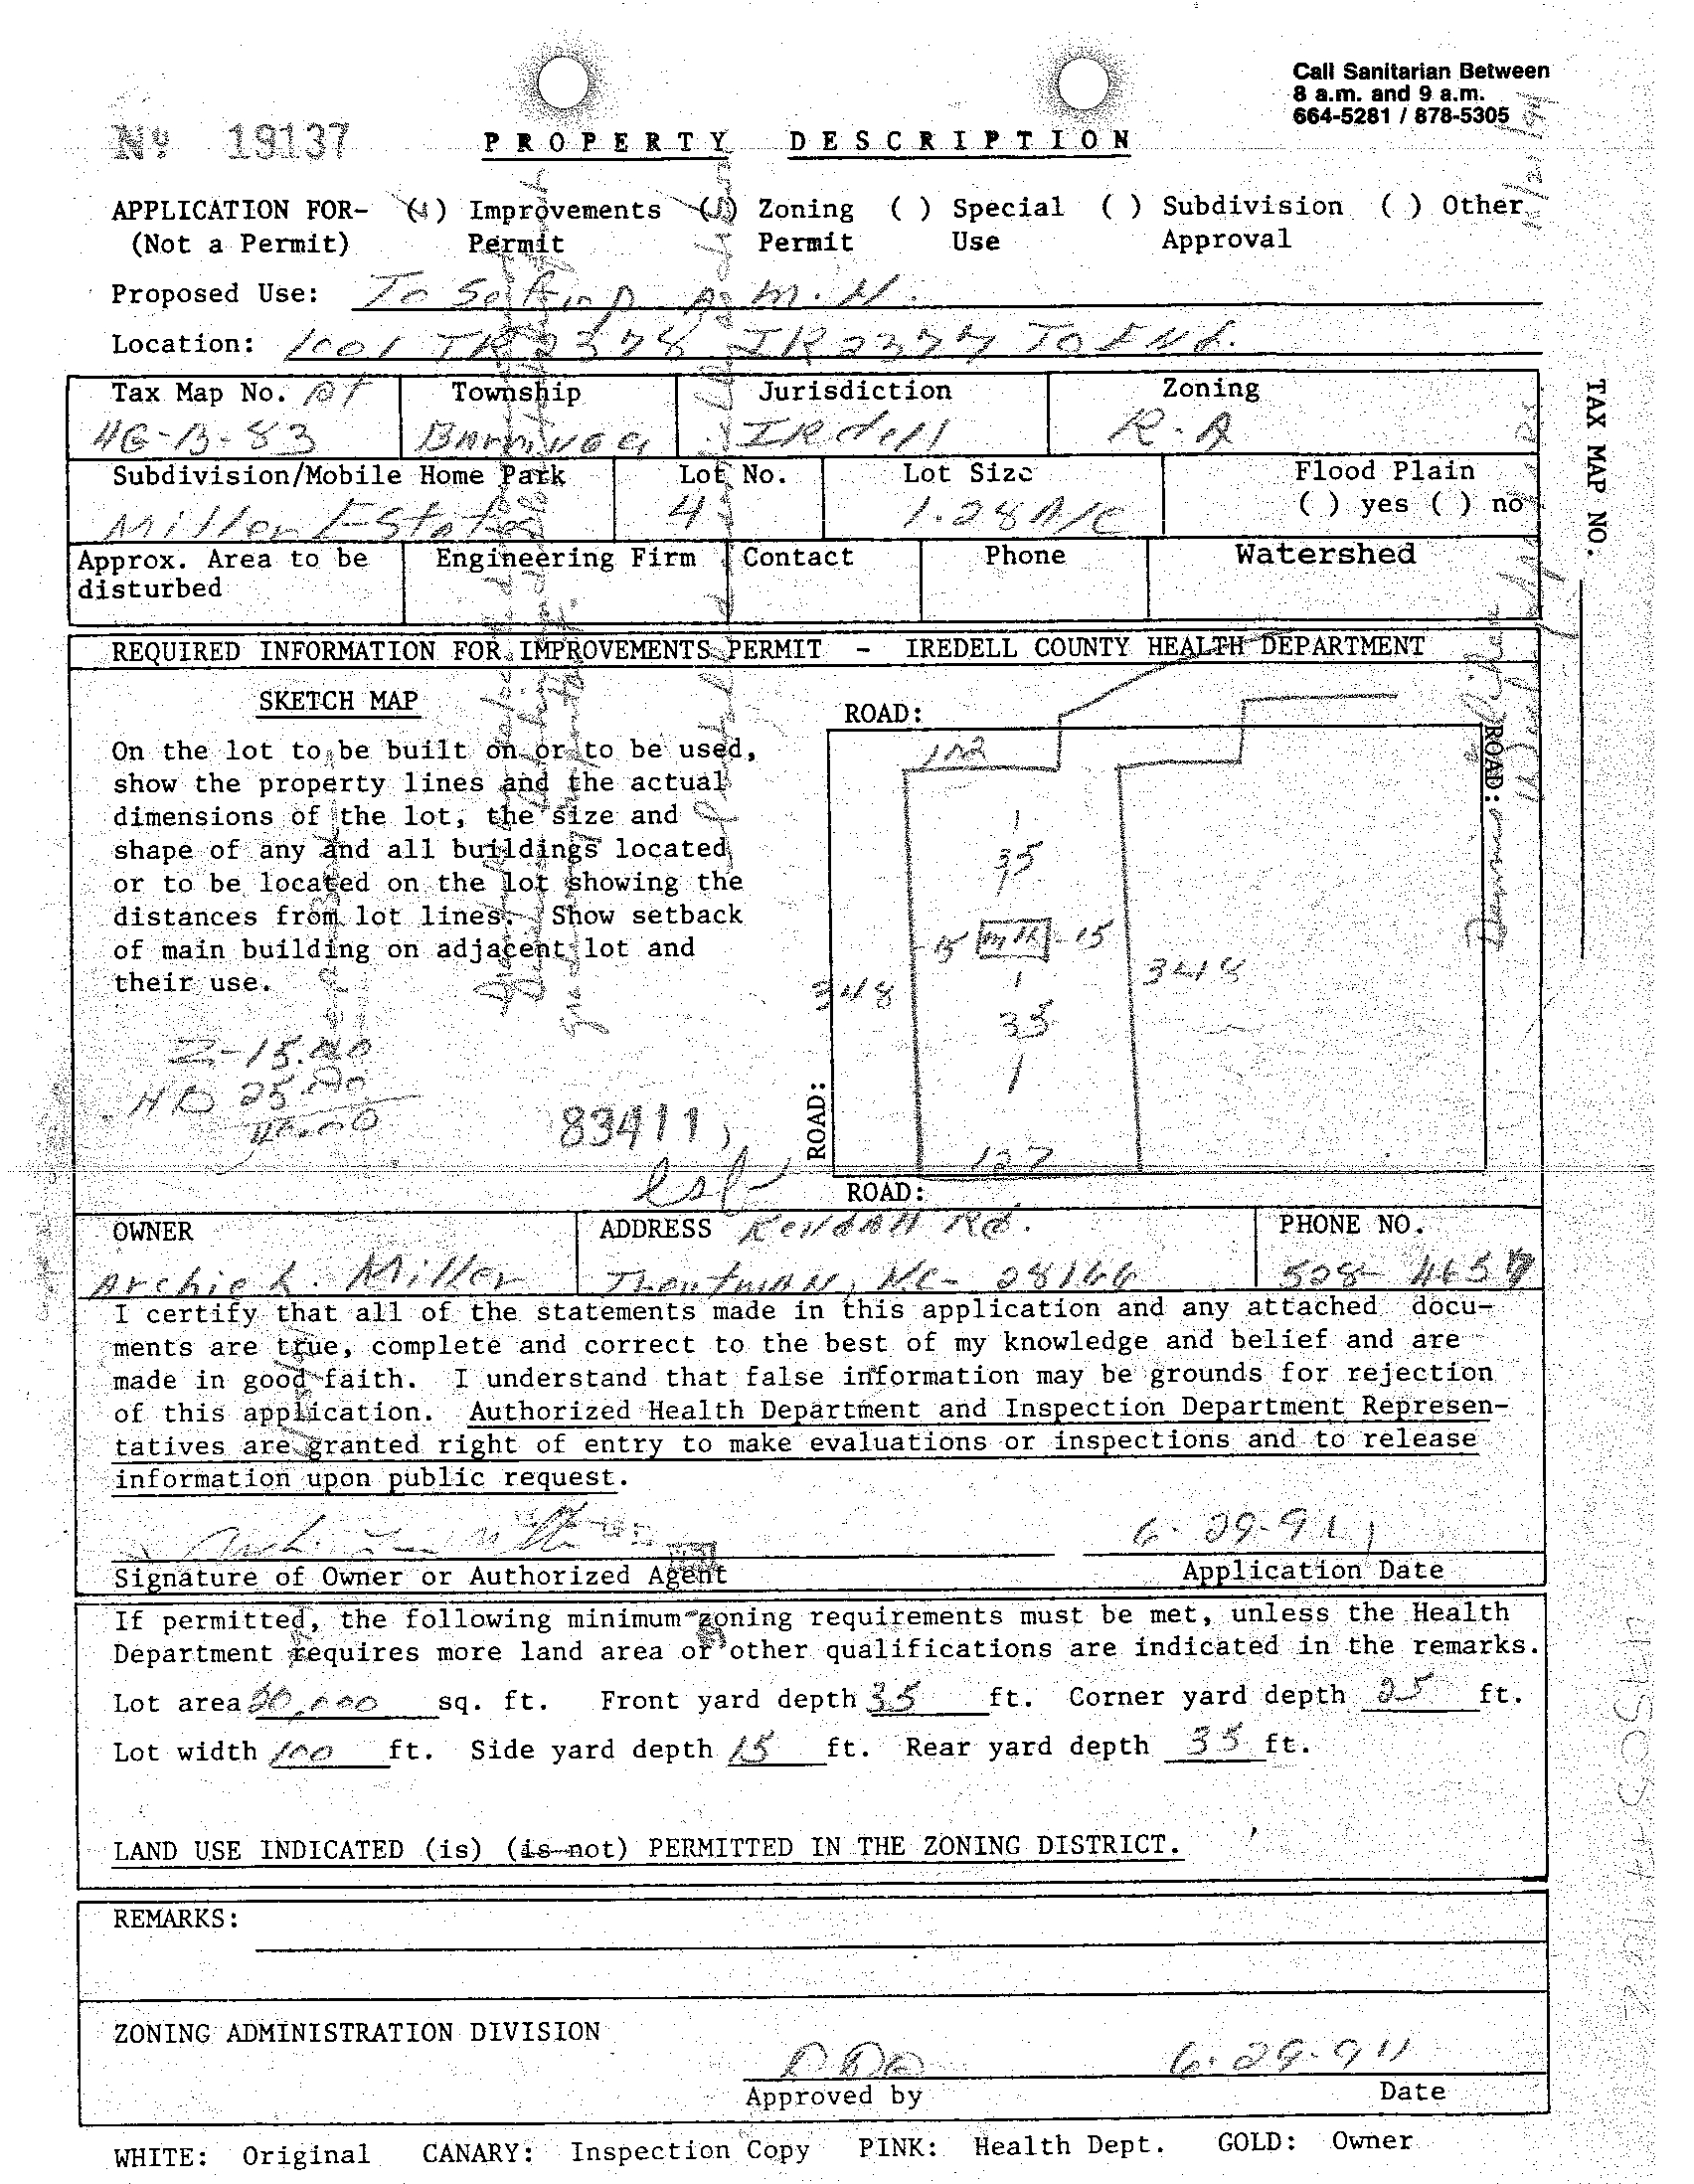 Call Sanitarian Between
8 a.m. and 9 a.m.
664-5281 / 878-5305
No 19137
PROPERTY DESCRIPTION
APPLICATION FOR- ( ) Improvements ( ) Zoning ( ) Special ( ) Subdivision ( ) Other
(Not a Permit) Permit Permit Use Approval
Proposed Use: To Set up A M.H.
Location: 1001 TR 2378 TR 2377 To End.
Tax Map No. Township Jurisdiction Zoning
4G-B-83 Barringer Iredell R-A
Subdivision/Mobile Home Park Lot No. Lot Size Flood Plain
Miller Estates 4 1.28 A/C ( ) yes ( ) no
Approx. Area to be disturbed Engineering Firm Contact Phone Watershed
TAX MAP NO.
REQUIRED INFORMATION FOR IMPROVEMENTS PERMIT - IREDELL COUNTY HEALTH DEPARTMENT
SKETCH MAP
On the lot to be built on or to be used,
show the property lines and the actual
dimensions of the lot, the size and
shape of any and all buildings located
or to be located on the lot showing the
distances from lot lines. Show setback
of main building on adjacent lot and
their use.
ROAD:
102
35
15 M H 15
348 348
35
127
ROAD:
ROAD:
ROAD:
Z-15.00
HD 25.00
83411
OWNER ADDRESS Kendall Rd. PHONE NO.
Archie L. Miller Troutman, N.C- 28166 528-4657
I certify that all of the statements made in this application and any attached docu-
ments are true, complete and correct to the best of my knowledge and belief and are
made in good faith. I understand that false information may be grounds for rejection
of this application. Authorized Health Department and Inspection Department Represen-
tatives are granted right of entry to make evaluations or inspections and to release
information upon public request.
6-29-91
Signature of Owner or Authorized Agent Application Date
If permitted, the following minimum zoning requirements must be met, unless the Health
Department requires more land area or other qualifications are indicated in the remarks.
Lot area 20,000 sq. ft. Front yard depth 35 ft. Corner yard depth 25 ft.
Lot width 100 ft. Side yard depth 15 ft. Rear yard depth 35 ft.
LAND USE INDICATED (is) (is not) PERMITTED IN THE ZONING DISTRICT.
REMARKS:
ZONING ADMINISTRATION DIVISION
Approved by Date
WHITE: Original CANARY: Inspection Copy PINK: Health Dept. GOLD: Owner